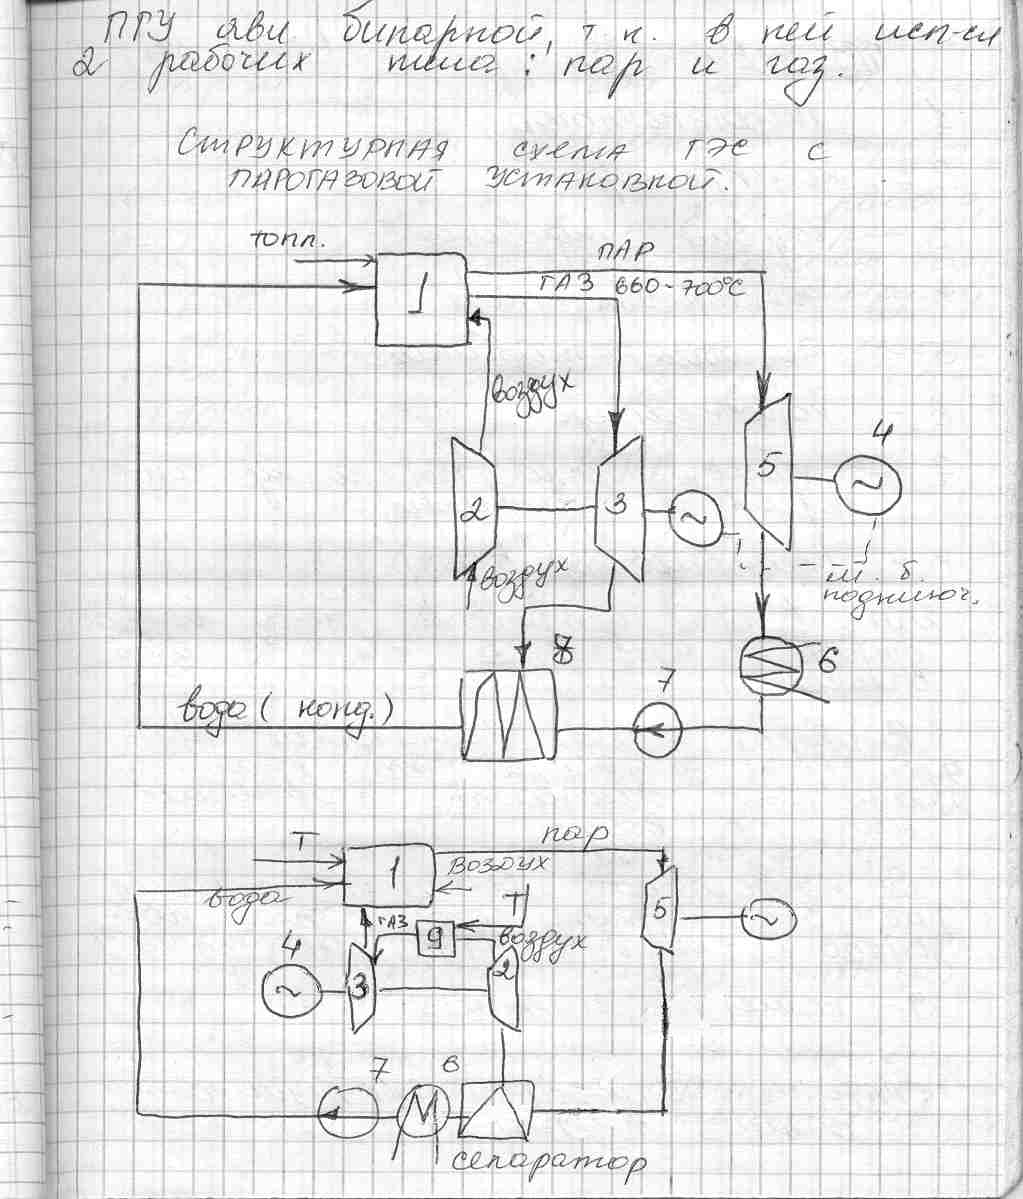 ПГУ явл. бинарной, т.к. в ней исп-ся
2 рабочих тела: пар и газ.
СТРУКТУРНАЯ СХЕМА ТЭС С
ПАРОГАЗОВОЙ УСТАНОВКОЙ.
топл.
ПАР
1
ГАЗ 660-700°С
воздух
4
5
2
3
~
~
воздух
м. б.
подключ.
8
7
6
вода ( конд.)
Т
пар
1
ВОЗДУХ
вода
Т
5
~
ГАЗ
9
воздух
4
2
~
3
7
8
сепаратор